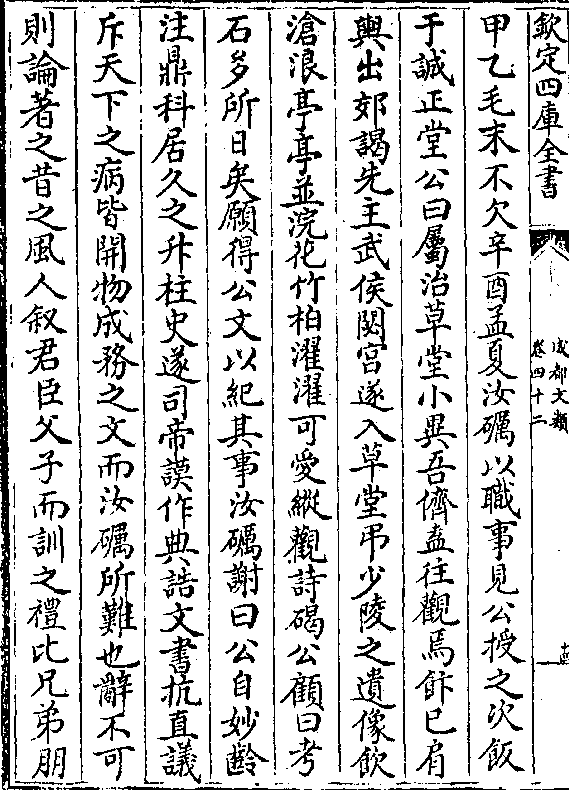 欽定四庫全書
成都文類
卷四十二
甲乙毛末不欠辛酉孟夏汝礪以職事見公授之次飯
于誠正堂公曰屬治草堂小異吾儕盍往觀焉飰已肩
輿出郊謁先主武侯閟宮遂入草堂弔少陵之遺像飲
滄浪亭亭並浣花竹柏濯濯可愛縱觀詩碣公顧曰考
石多所日矣願得公文以紀其事汝礪謝曰公自妙齡
注鼎科居久之升柱史遂司帝謨作典誥文書抗直議
斥天下之病皆開物成務之文而汝礪所難也辭不可
則論著之昔之風人叙君臣父子而訓之禮比兄弟朋